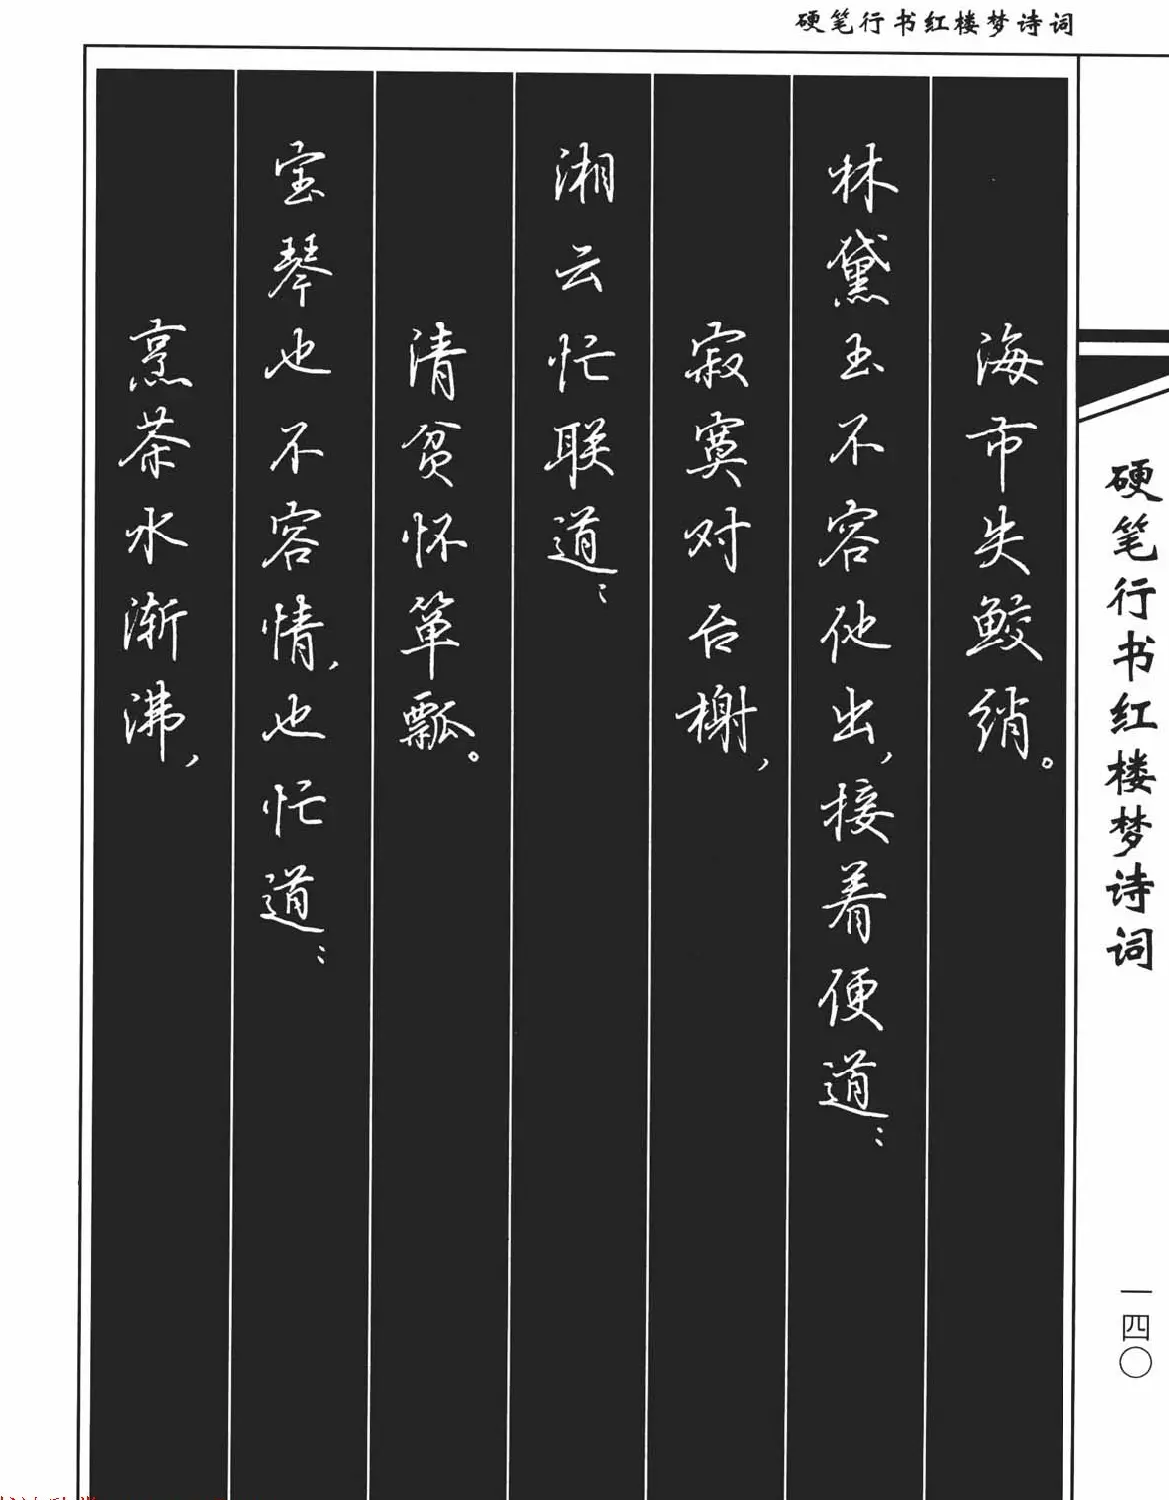 硬笔行书红楼梦诗词
海市失鲛绡。
林黛玉不容他出,接着便道:
寂寞对台榭,
湘云忙联道:
清贫怀箪瓢。
宝琴也不容情,也忙道:
烹茶水渐沸,
硬笔行书红楼梦诗词
一四〇